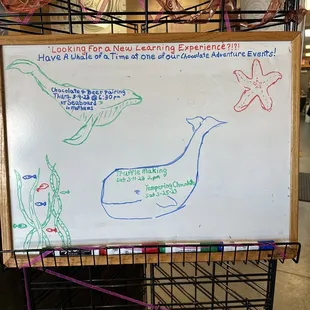 Looking For a New Learning Experience?!?!
Have A Whale of a Time at one of our Chocolate Adventure Events!
Chocolate & Beer Pairing
Thurs. 5-4-23 @ 6:30 pm
@ Seaboard
in Mathews
Truffle Making
Sat 3-11-23 2 pm
Tempering Chocolate
Sat 3-25-23